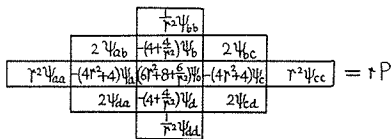 1/r² ψbb
2ψab -(4+4/r²)ψb 2ψbc
r²ψaa -(4r²+4)ψa (6r²+8+6/r²)ψ -(4r²+4)ψc r²ψcc = rP
2ψda -(4+4/r²)ψd 2ψcd
1/r² ψdd